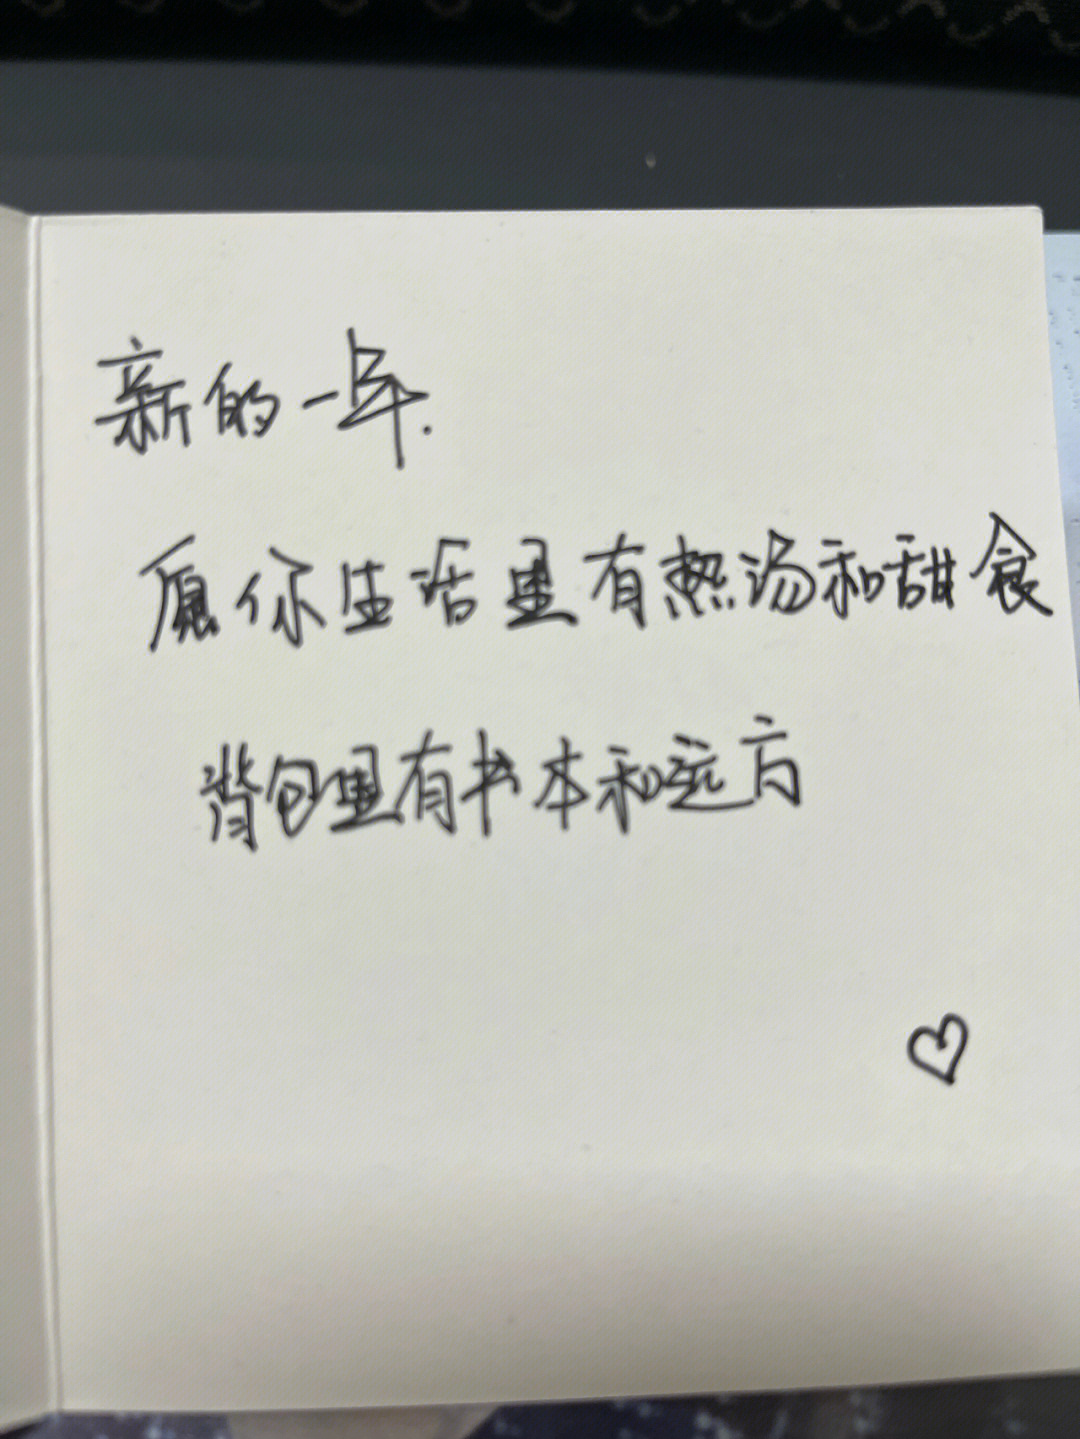 新的一年.
愿你生活里有热汤和甜食
背包里有书本和远方